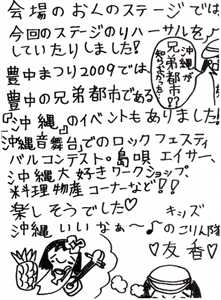 会場のおくのステージでは、
今回のステージのリハーサルを
していたりしました!
豊中まつり2009では
豊中の兄弟都市である
『沖縄』のイベントもありました!
沖縄音舞台でのロックフェスティ
バルコンテスト・島唄 エイサー、
沖縄大好きワークショップ
料理物産コーナーなど!!
楽しそうでした♡
沖縄いいなぁ〜♪
沖縄が
兄弟都市!?
知らなかった
キッズ
のごり隊
♡友香♡